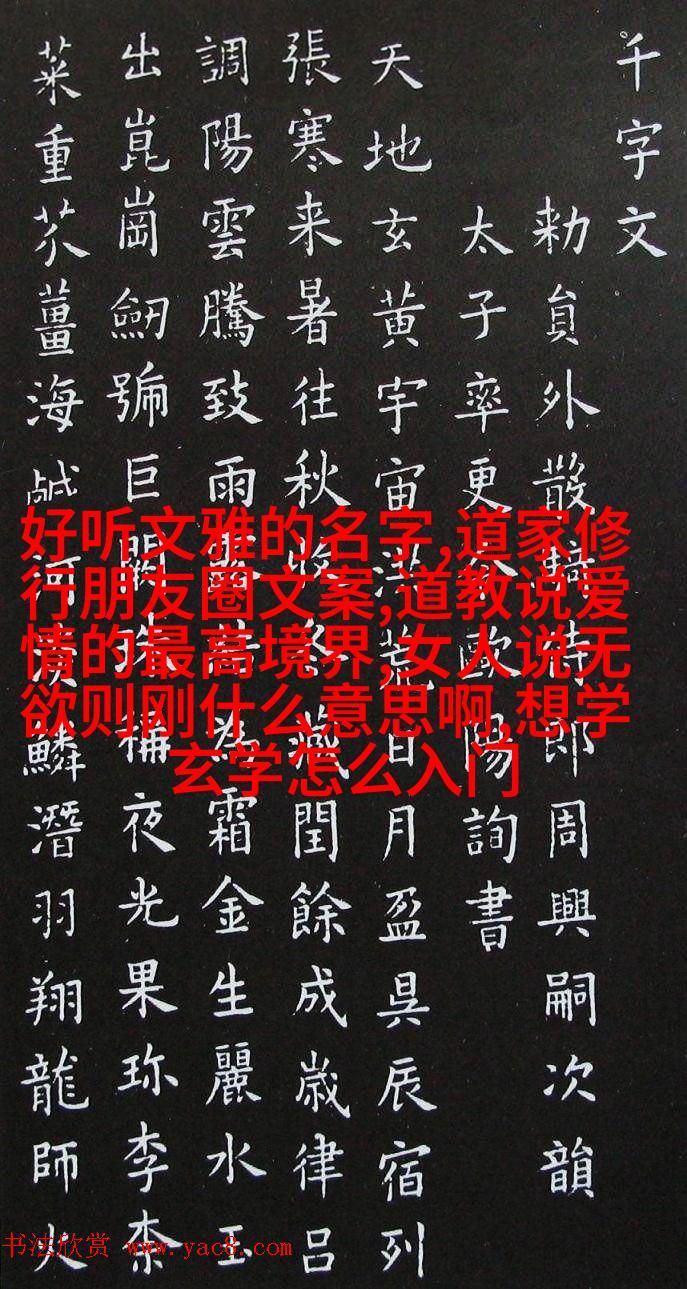 千字文
勑員外散騎侍郎周興嗣次韻
太子率更令歐陽詢書
天地玄黃宇宙洪荒日月盈昃辰宿列
張寒来暑往秋收冬藏閏餘成歲律吕
調陽雲騰致雨露結為霜金生麗水玉
出崑崗劔號巨闕珠稱夜光果珎李柰
菜重芥薑海鹹河淡鱗潛羽翔龍師火
好听文雅的名字,道家修
行朋友圈文案,道教说爱
情的最高境界,女人说无
欲则刚什么意思啊,想学
玄学怎么入门
书法欣赏 www.yac8.com